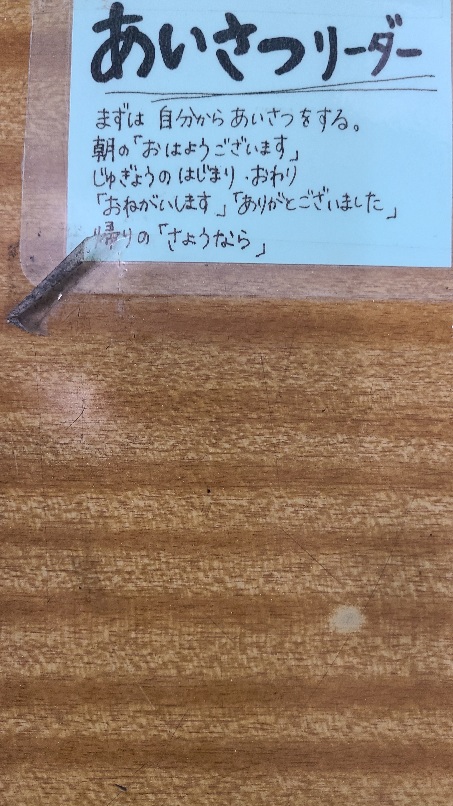 あいさつリーダー
まずは 自分からあいさつをする。
朝の「おはようございます」
じゅぎょうの はじまり・おわり
「おねがいします」「ありがとございました」
帰りの「さようなら」